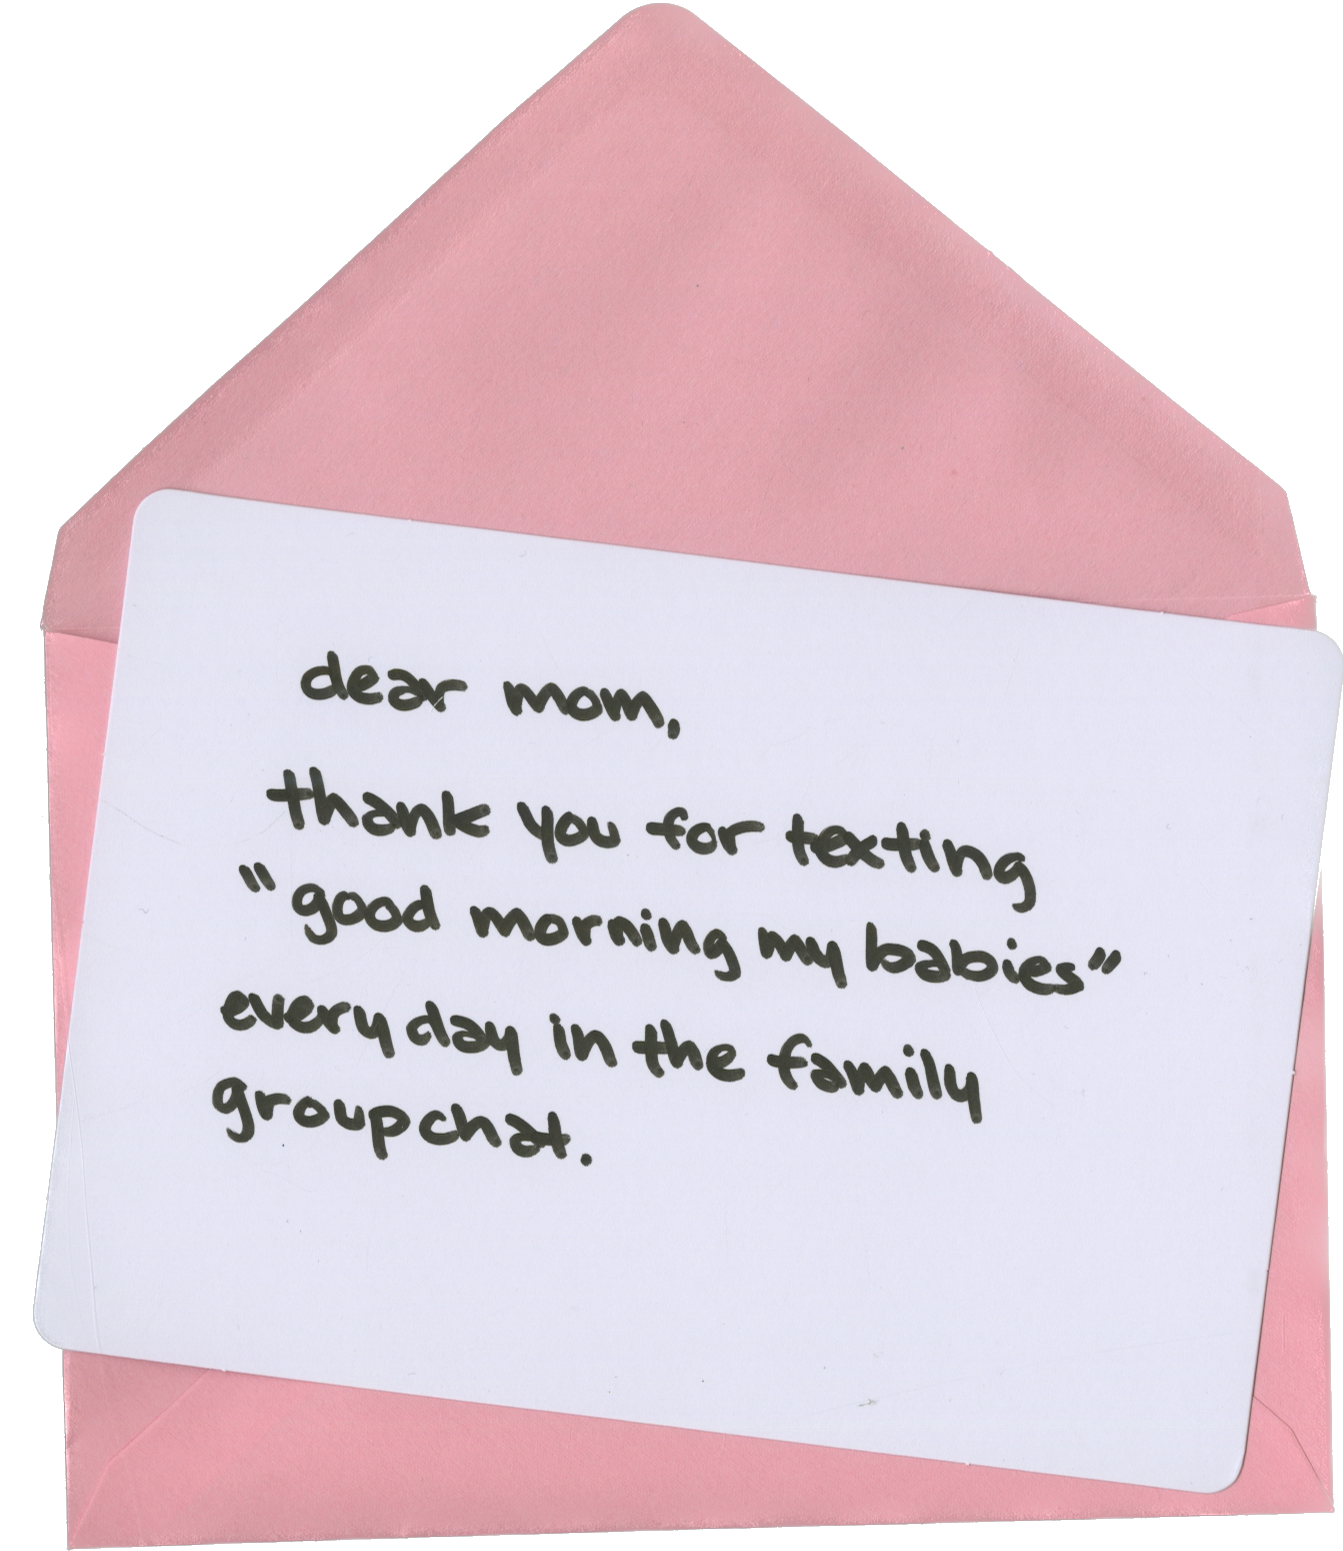 dear mom,
thank you for texting
"good morning my babies"
every day in the family
groupchat.